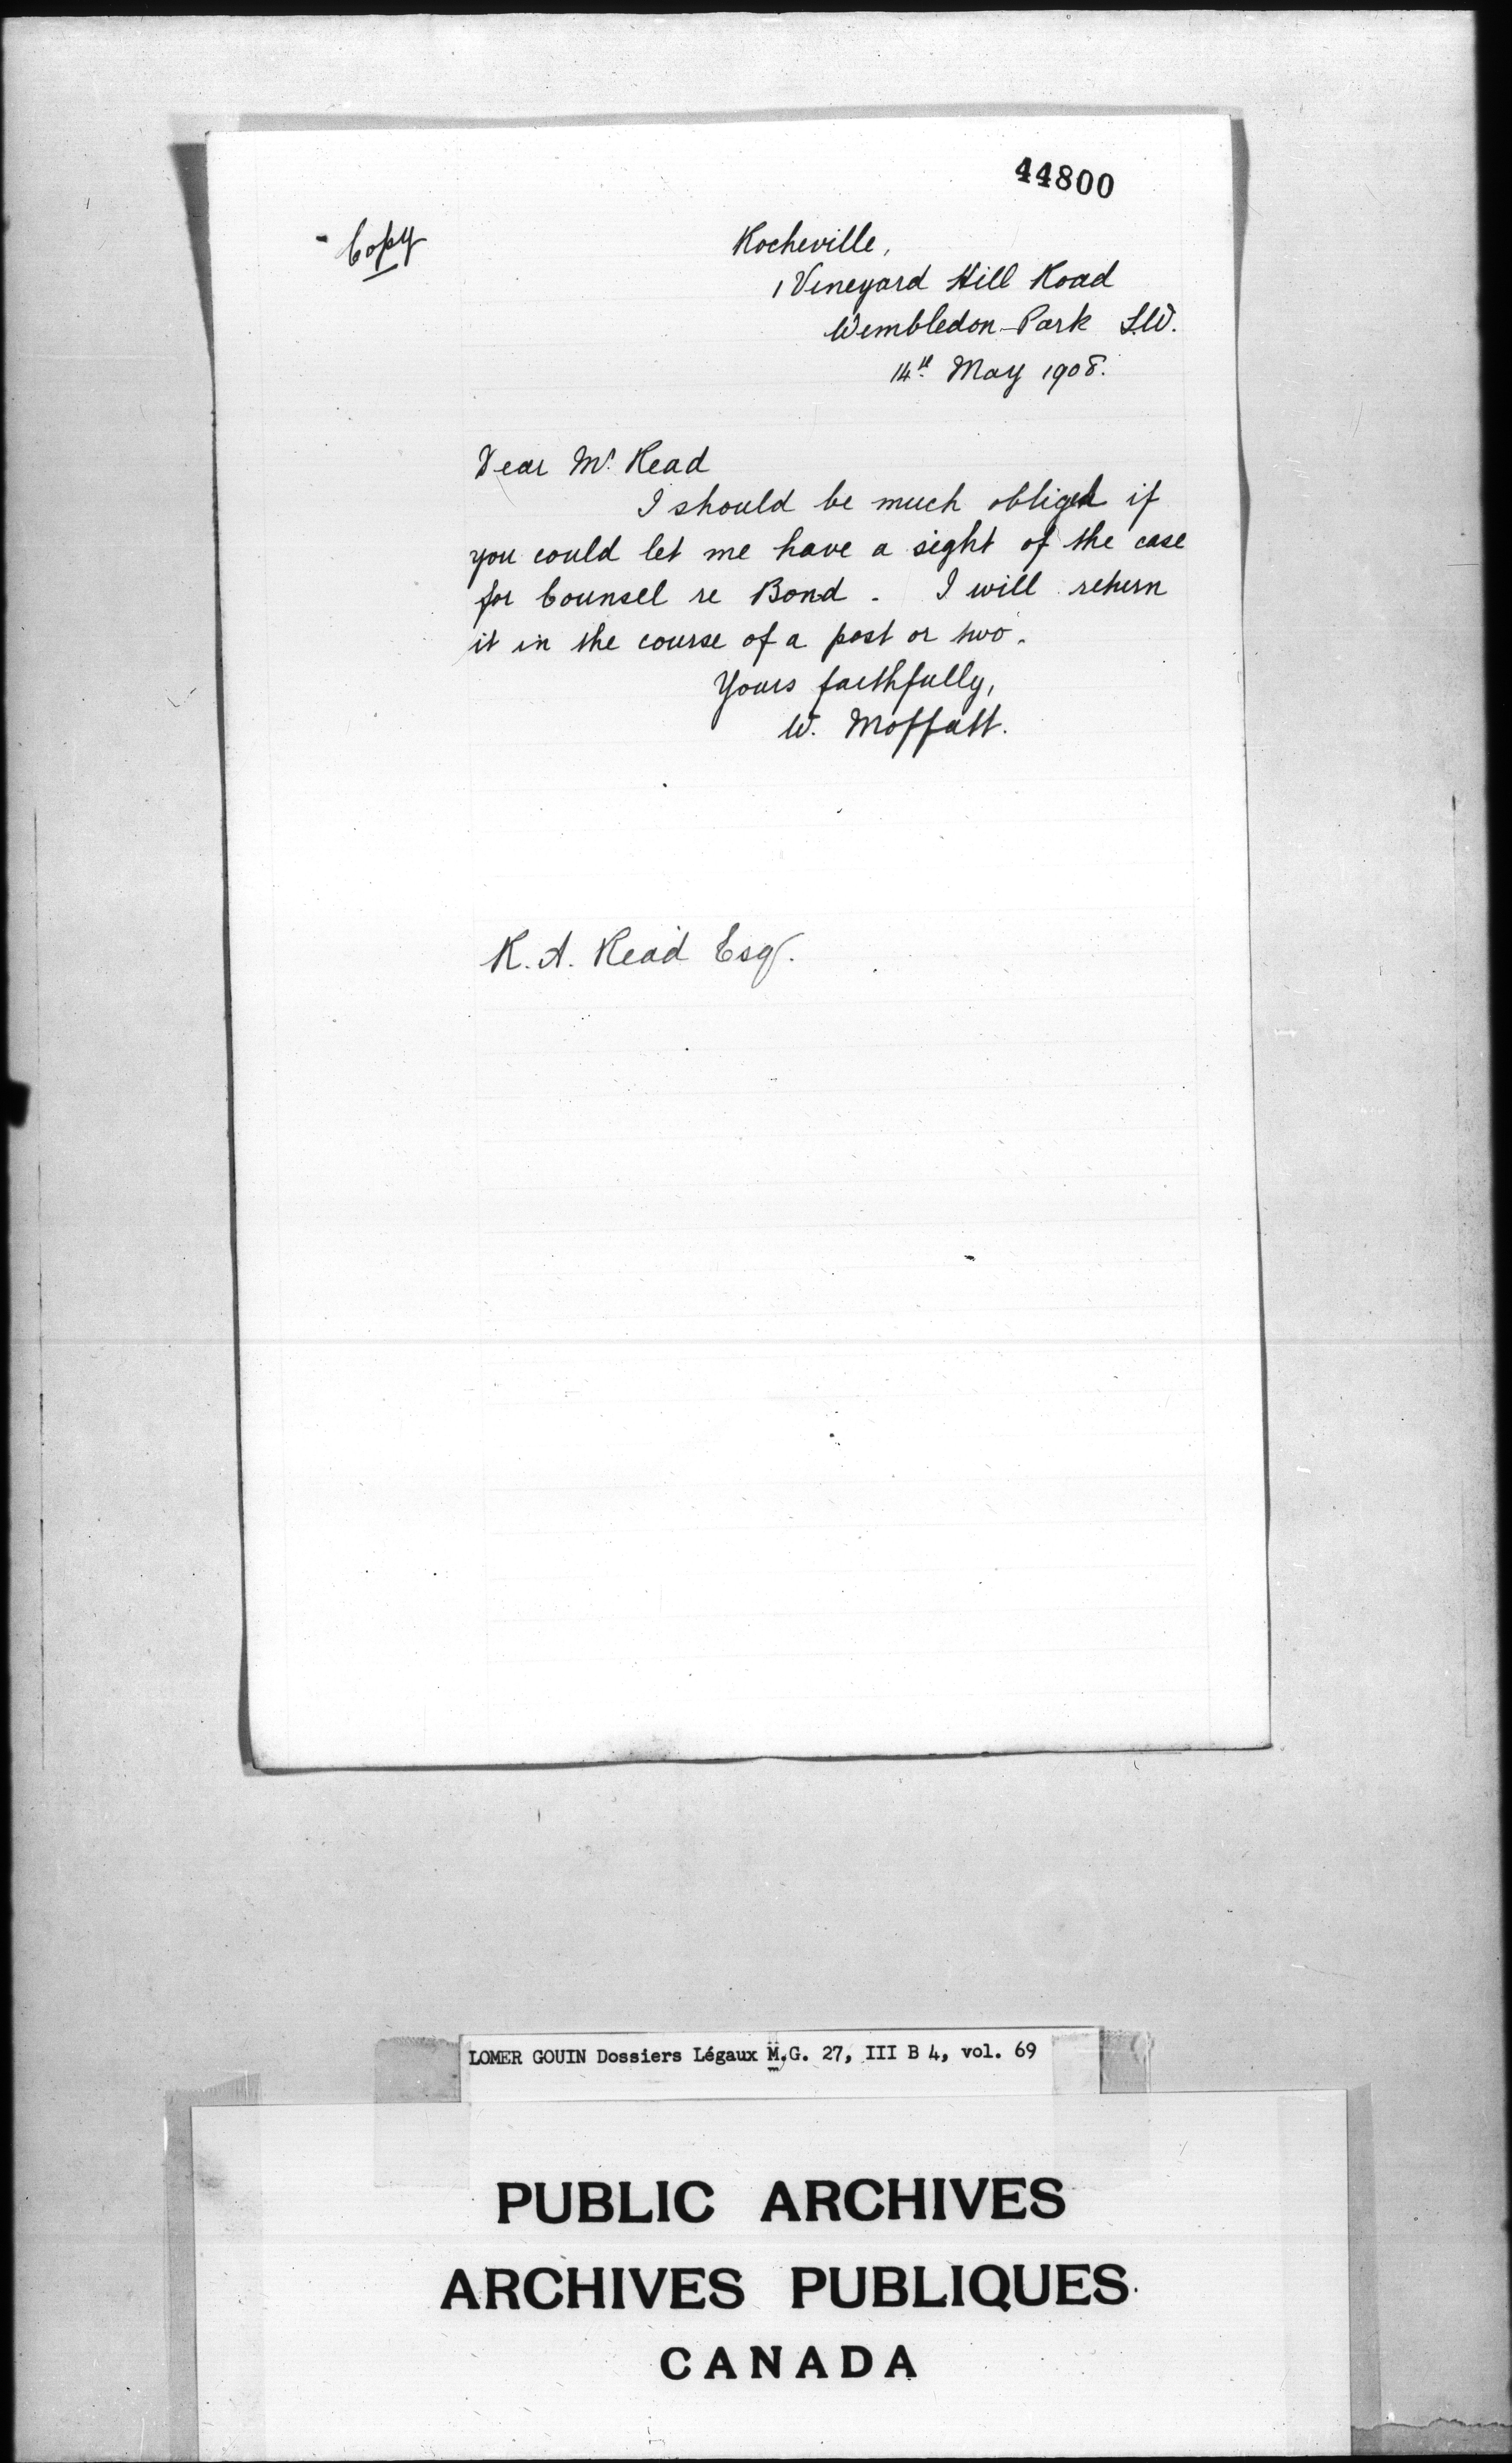 44800
Copy
Rocheville,
1 Vineyard Hill Road
Wimbledon Park S.W.
14th May 1908.
Dear Mr. Read
I should be much obliged if
you could let me have a sight of the case
for Counsel re Bond. I will return
it in the course of a post or two.
Yours faithfully,
W. Moffatt.
R. A. Read Esqr.
LOMER GOUIN Dossiers Légaux M.G. 27, III B 4, vol. 69
PUBLIC ARCHIVES
ARCHIVES PUBLIQUES
CANADA